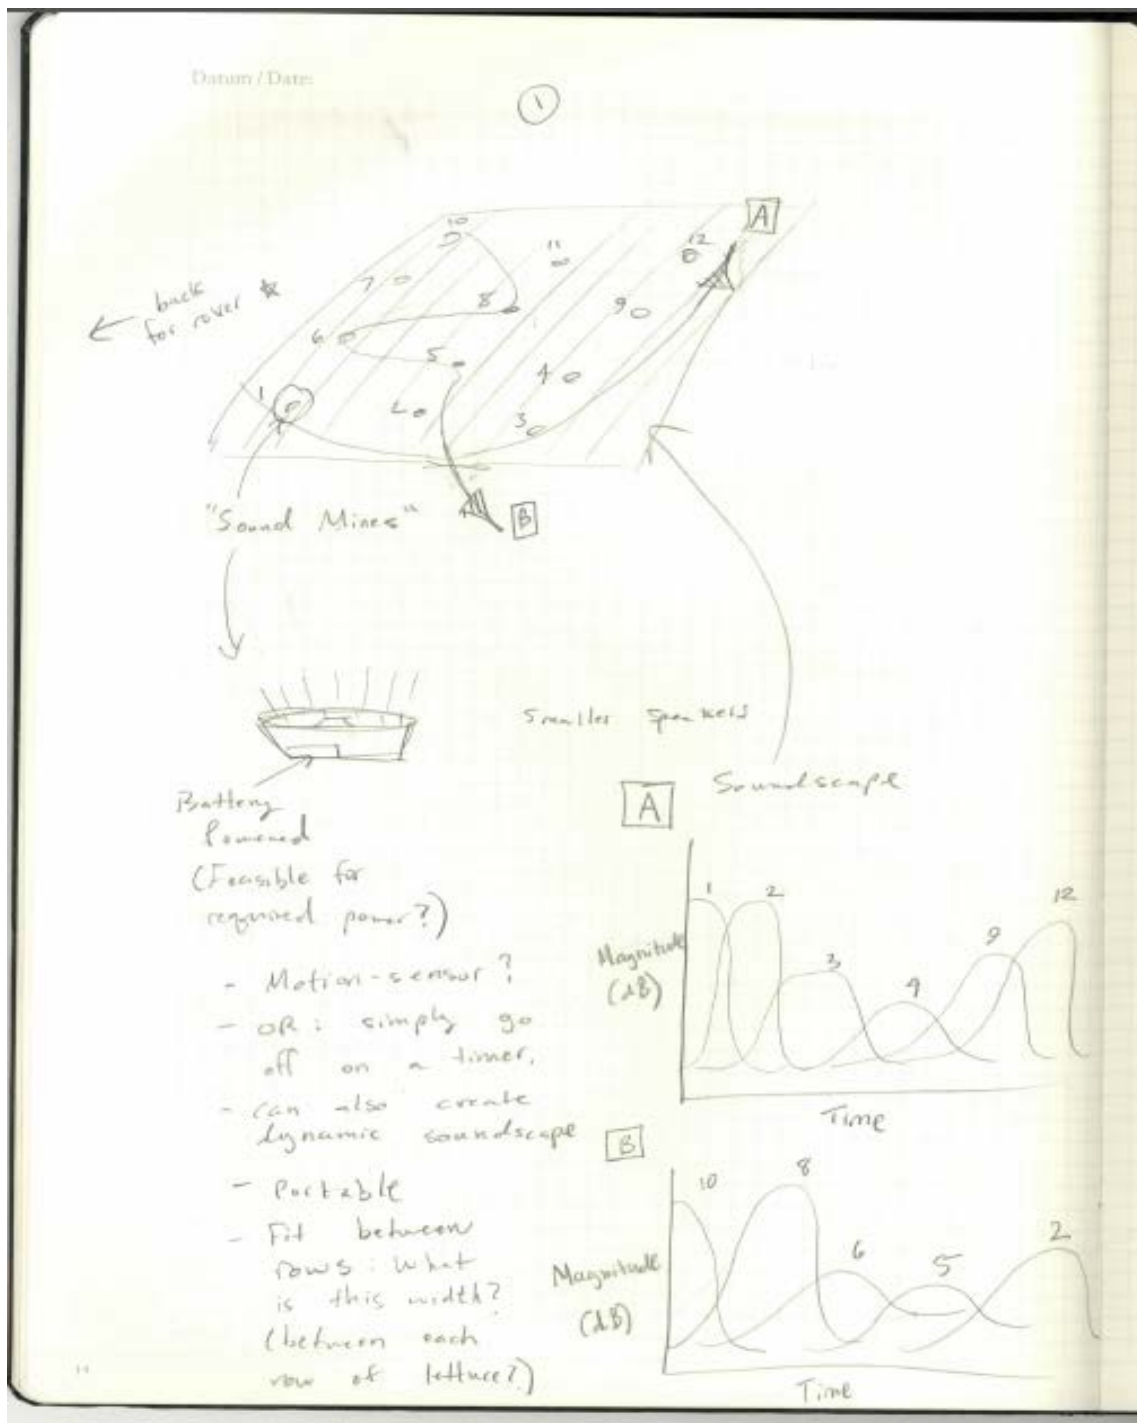 Datum / Date:
1
A
10
11
12
7
8
9
back
for rover
6
5
1
4
2
3
"Sound Mines"
B
Smaller speakers
Soundscape
Battery
Powered
(Feasible for
required power?)
- Motion-sensor?
- OR: simply go
off on a timer.
- can also create
dynamic soundscape
- Portable
- Fit between
rows: What
is this width?
(between each
row of lettuce?)
A
1
2
3
4
9
12
Magnitude
(dB)
Time
B
10
8
6
5
2
Magnitude
(dB)
Time